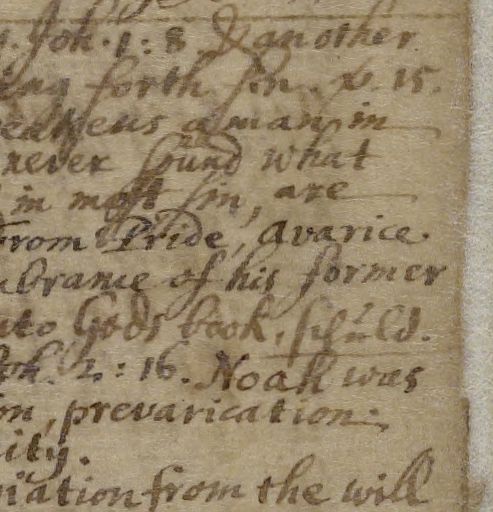 Joh. 1: 8. & another
forth sin. v. 15.
a man in
never found what
in most sin, are
From Pride, Avarice.
brance of his former
nto Gods book,
Joh. 2: 16. Noah was
on, prevarication.
ity.
iation from the will